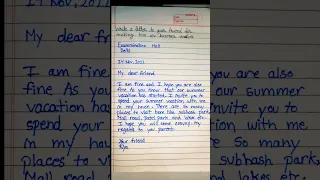 Write a letter to your friend for
inviting him on summer vacation
Examination Hall
Delhi
14 Nov, 2021
My dear friend
I am fine and I hope you are also
fine As you know that our summer
vacation has started. I invite you to
spend your summer vacation with me
in my house. There are So many
places to visit here like subhash park,
Mall road, Patel park and lakes etc.
I hope you will come early. My
regards to your parents.
Your friend
14 Nov, 2021
My dear friend
I am fine
fine As you
vacation has
spend your
in my house
places to
Mall road,
our summer
invite you to
tion with me
So many
subhash park,
lakes etc.